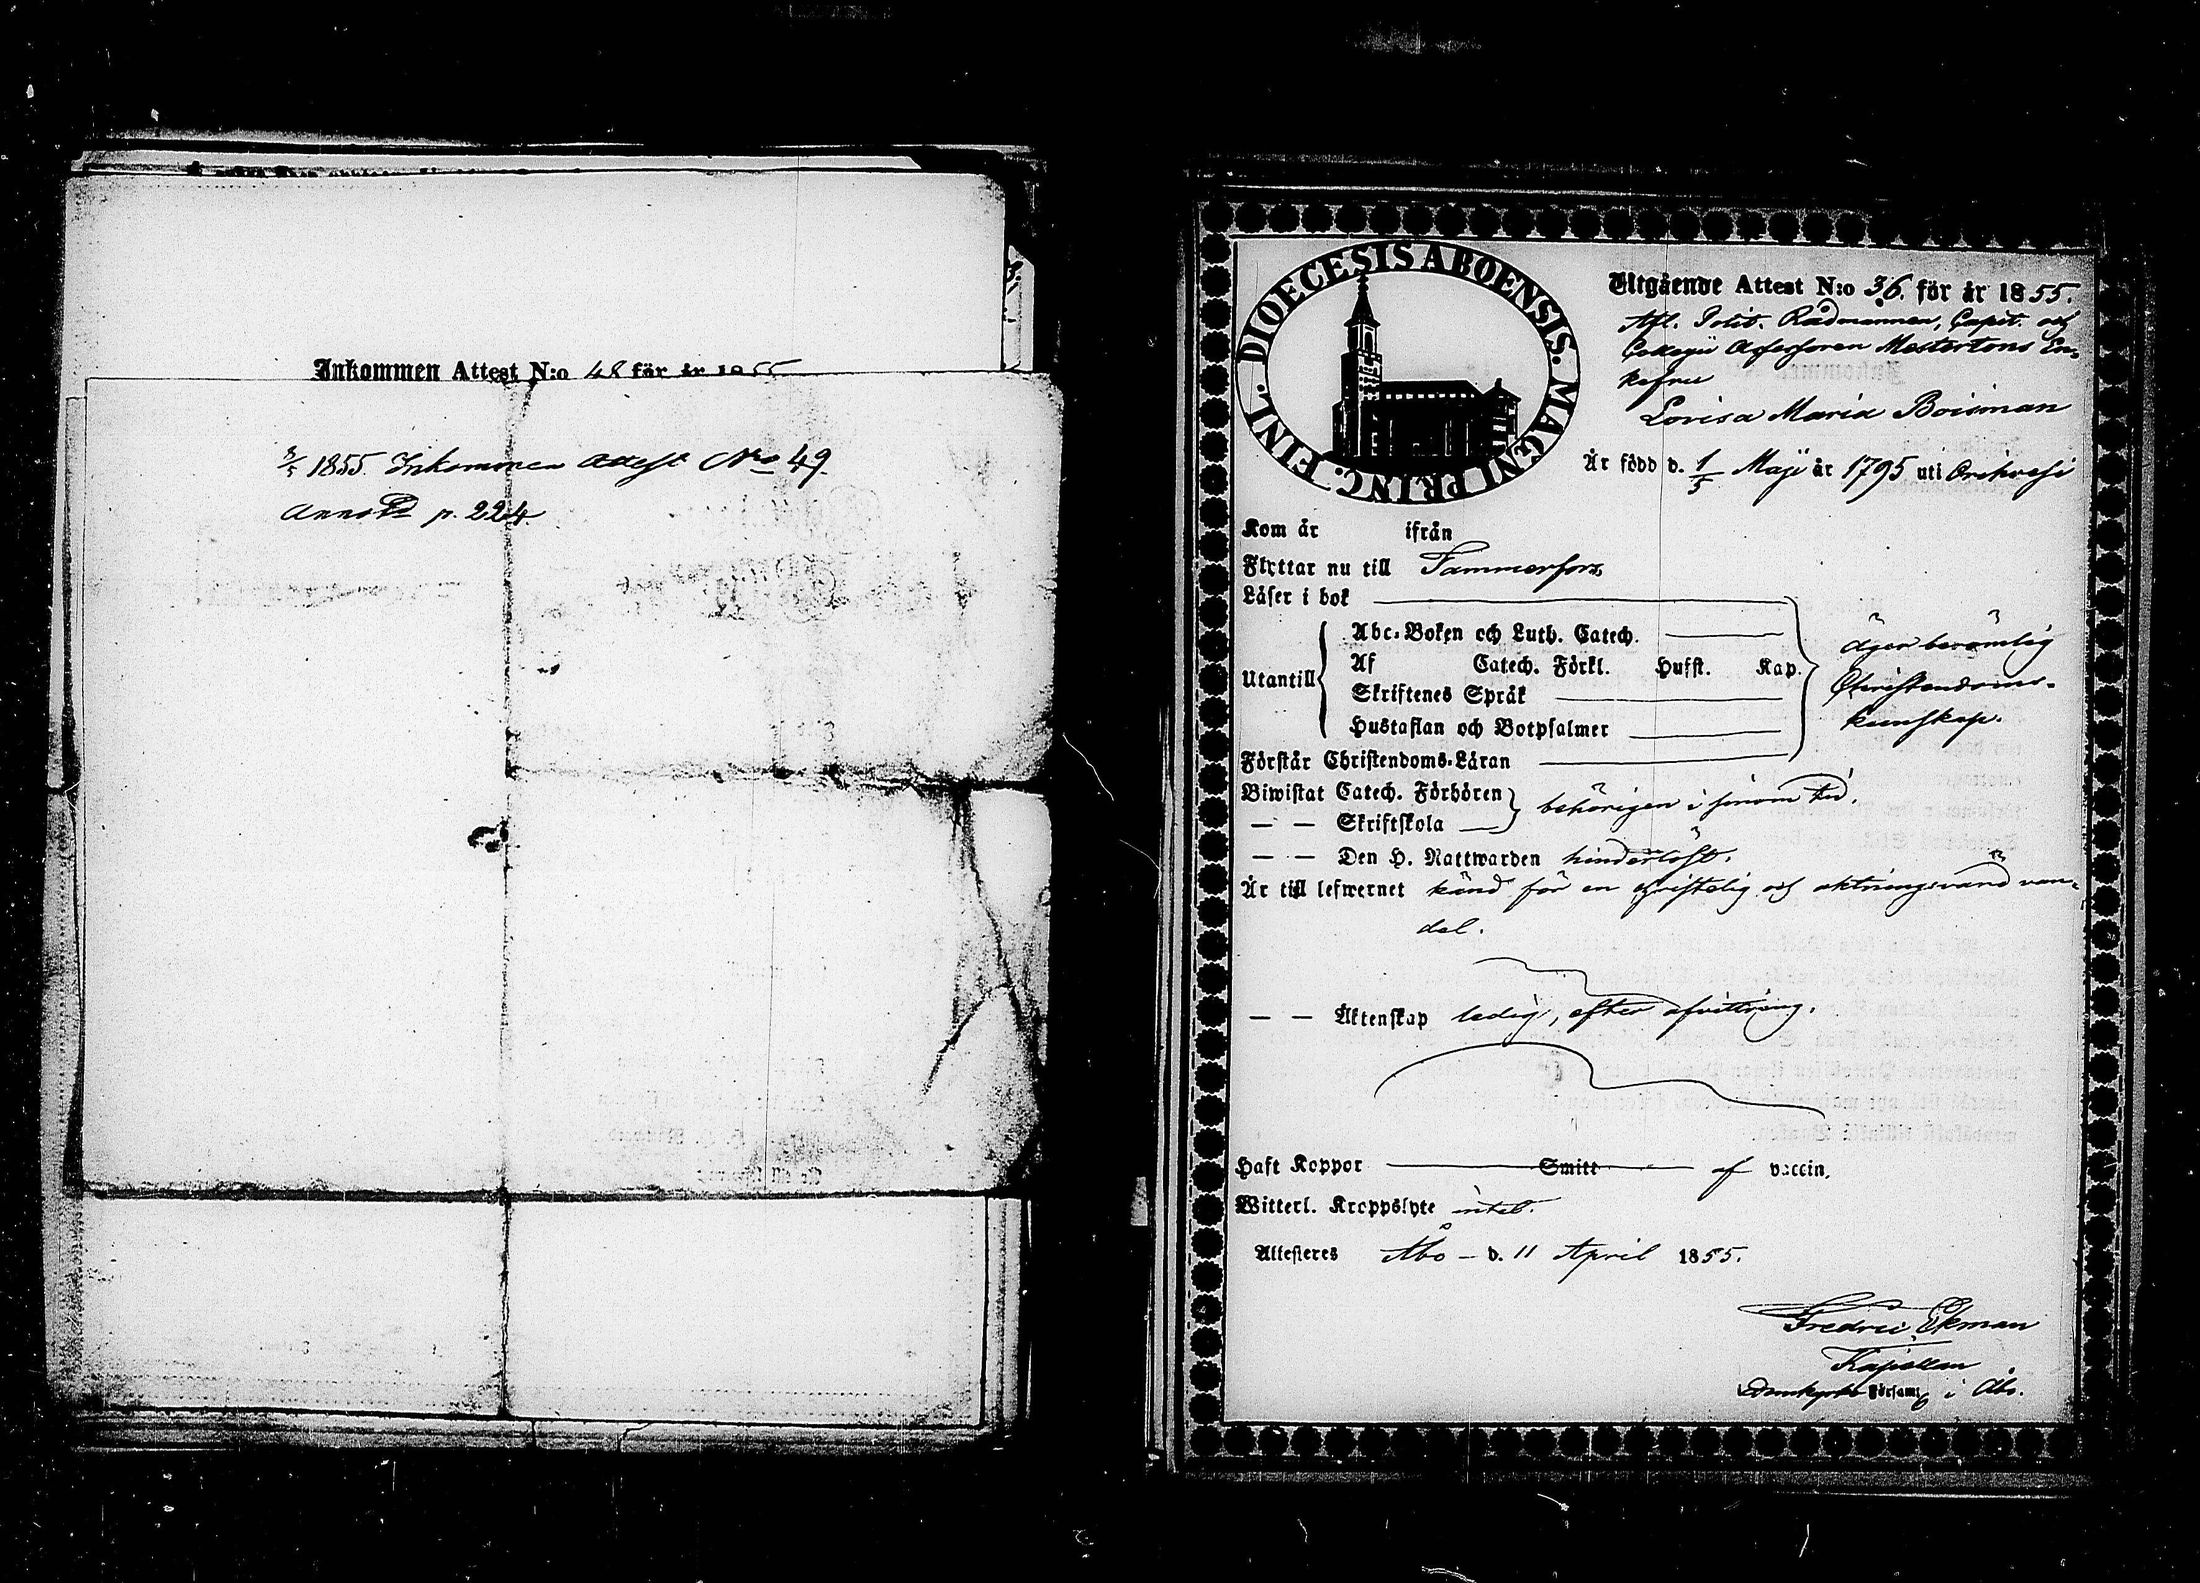 Inkommen Attest N:o 48 för år 1855
3/5 1855. Inkommen Attest Nro 49.
Annot. p. 224.
DIOECESIS ABOENSIS. MAGNI PRINC. FINL.
Utgående Attest N:o 36. för år 1855.
Afl. Polit. Rådmannen, Capit. och
Collegii Assessoren Mestertons En-
kefru
Lovisa Maria Boisman
Är född d. 1/5 Maji år 1795 uti Orihvesi
Kom år ifrån
Flyttar nu till Tammerfors
Läser i bok
Utantill
Abc-Boken och Luth. Catech.
Af Catech. Förkl. Husst. Kap.
Skriftenes Språk
Hustaflan och Botpsalmer
äger berömlig
Christendoms-
kunskap.
Förstår Christendoms-Läran
Biwistat Catech. Förhören
— — Skriftskola
behörigen i sinom tid.
— — Den H. Nattwarden hinderlöst.
Är till lefwernet känd för en christelig och aktningsvärd van-
del.
— — Äktenskap ledig, efter afvittring.
Haft Koppor Smitt af vaccin.
Witterl. Kroppslyte intet.
Attesteres Åbo – d. 11 April 1855.
Fredric Ekman
Kapellan
Domkyrko Församl i Åbo.